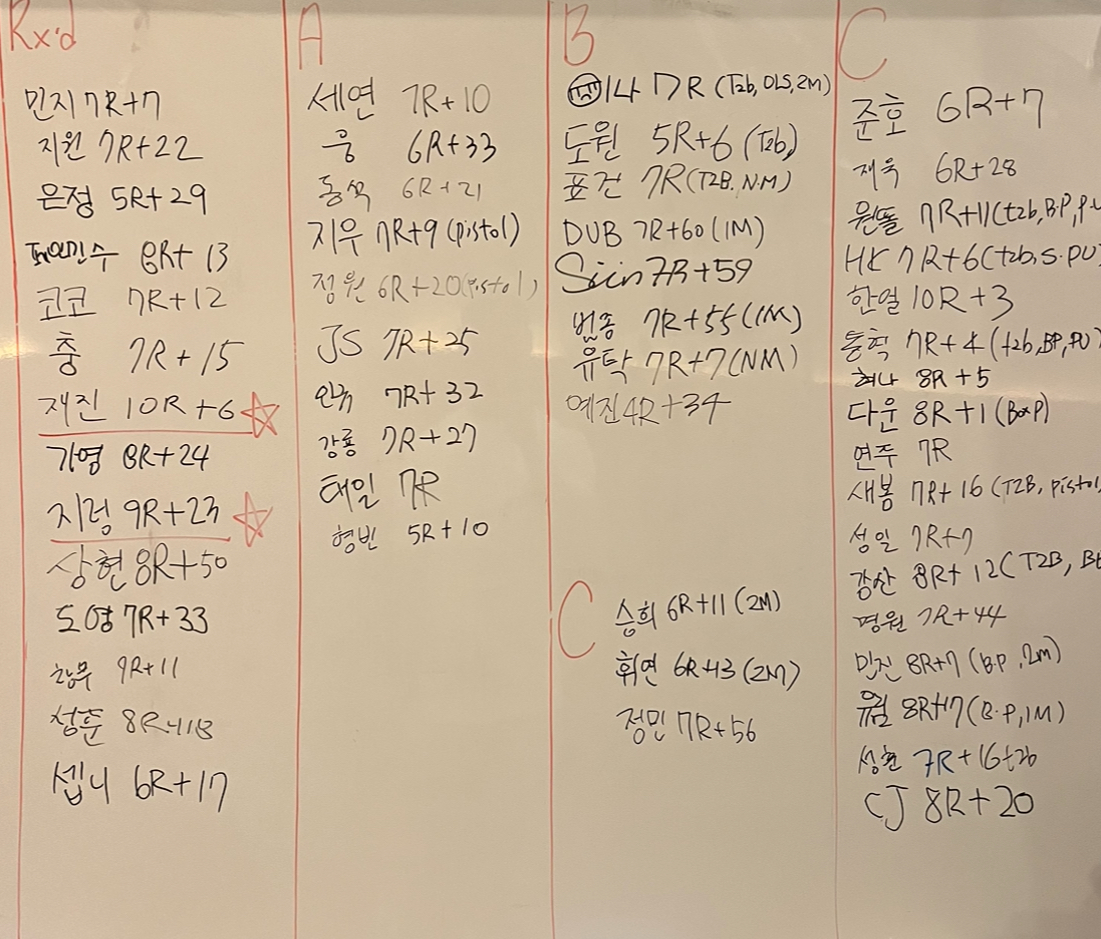 Rx'd
민지 7R+7
지원 7R+22
은정 5R+29
민수 8R+13
코코 7R+12
충 7R+15
재진 10R+6
가영 8R+24
지정 9R+23
상현 8R+50
도영 7R+33
9R+11
청춘 8R+18
셉니 6R+17
A
세연 7R+10
웅 6R+33
동석 6R+21
지우 7R+9 (pistol)
정원 6R+20 (pistol)
JS 7R+25
7R+32
강룡 7R+27
태일 7R
형빈 5R+10
B
나 7R (T2b, OLS, 2M)
도원 5R+6 (T2b)
표건 7R (T2B. N.M)
DUB 7R+60 (1M)
7R+59
범송 7R+55 (1M)
유탁 7R+7 (NM)
예진 4R+34
C
승희 6R+11 (2M)
휘연 6R+13 (2M)
정민 7R+56
C
준호 6R+7
재욱 6R+28
원똘 7R+11 (t2b, B.P, P.U
HK 7R+6 (t2b, S.PU)
한얼 10R+3
동혁 7R+4 (t2b, BP, PU)
혜나 8R+5
다운 8R+1 (BoxP)
연주 7R
새봄 7R+16 (T2B, pistol,
성일 7R+7
강산 8R+12 (T2B, B
명원 7R+44
민진 8R+7 (B.P, 2m)
8R+17 (B.P, 1M)
성환 7R+16 t2b
CJ 8R+20